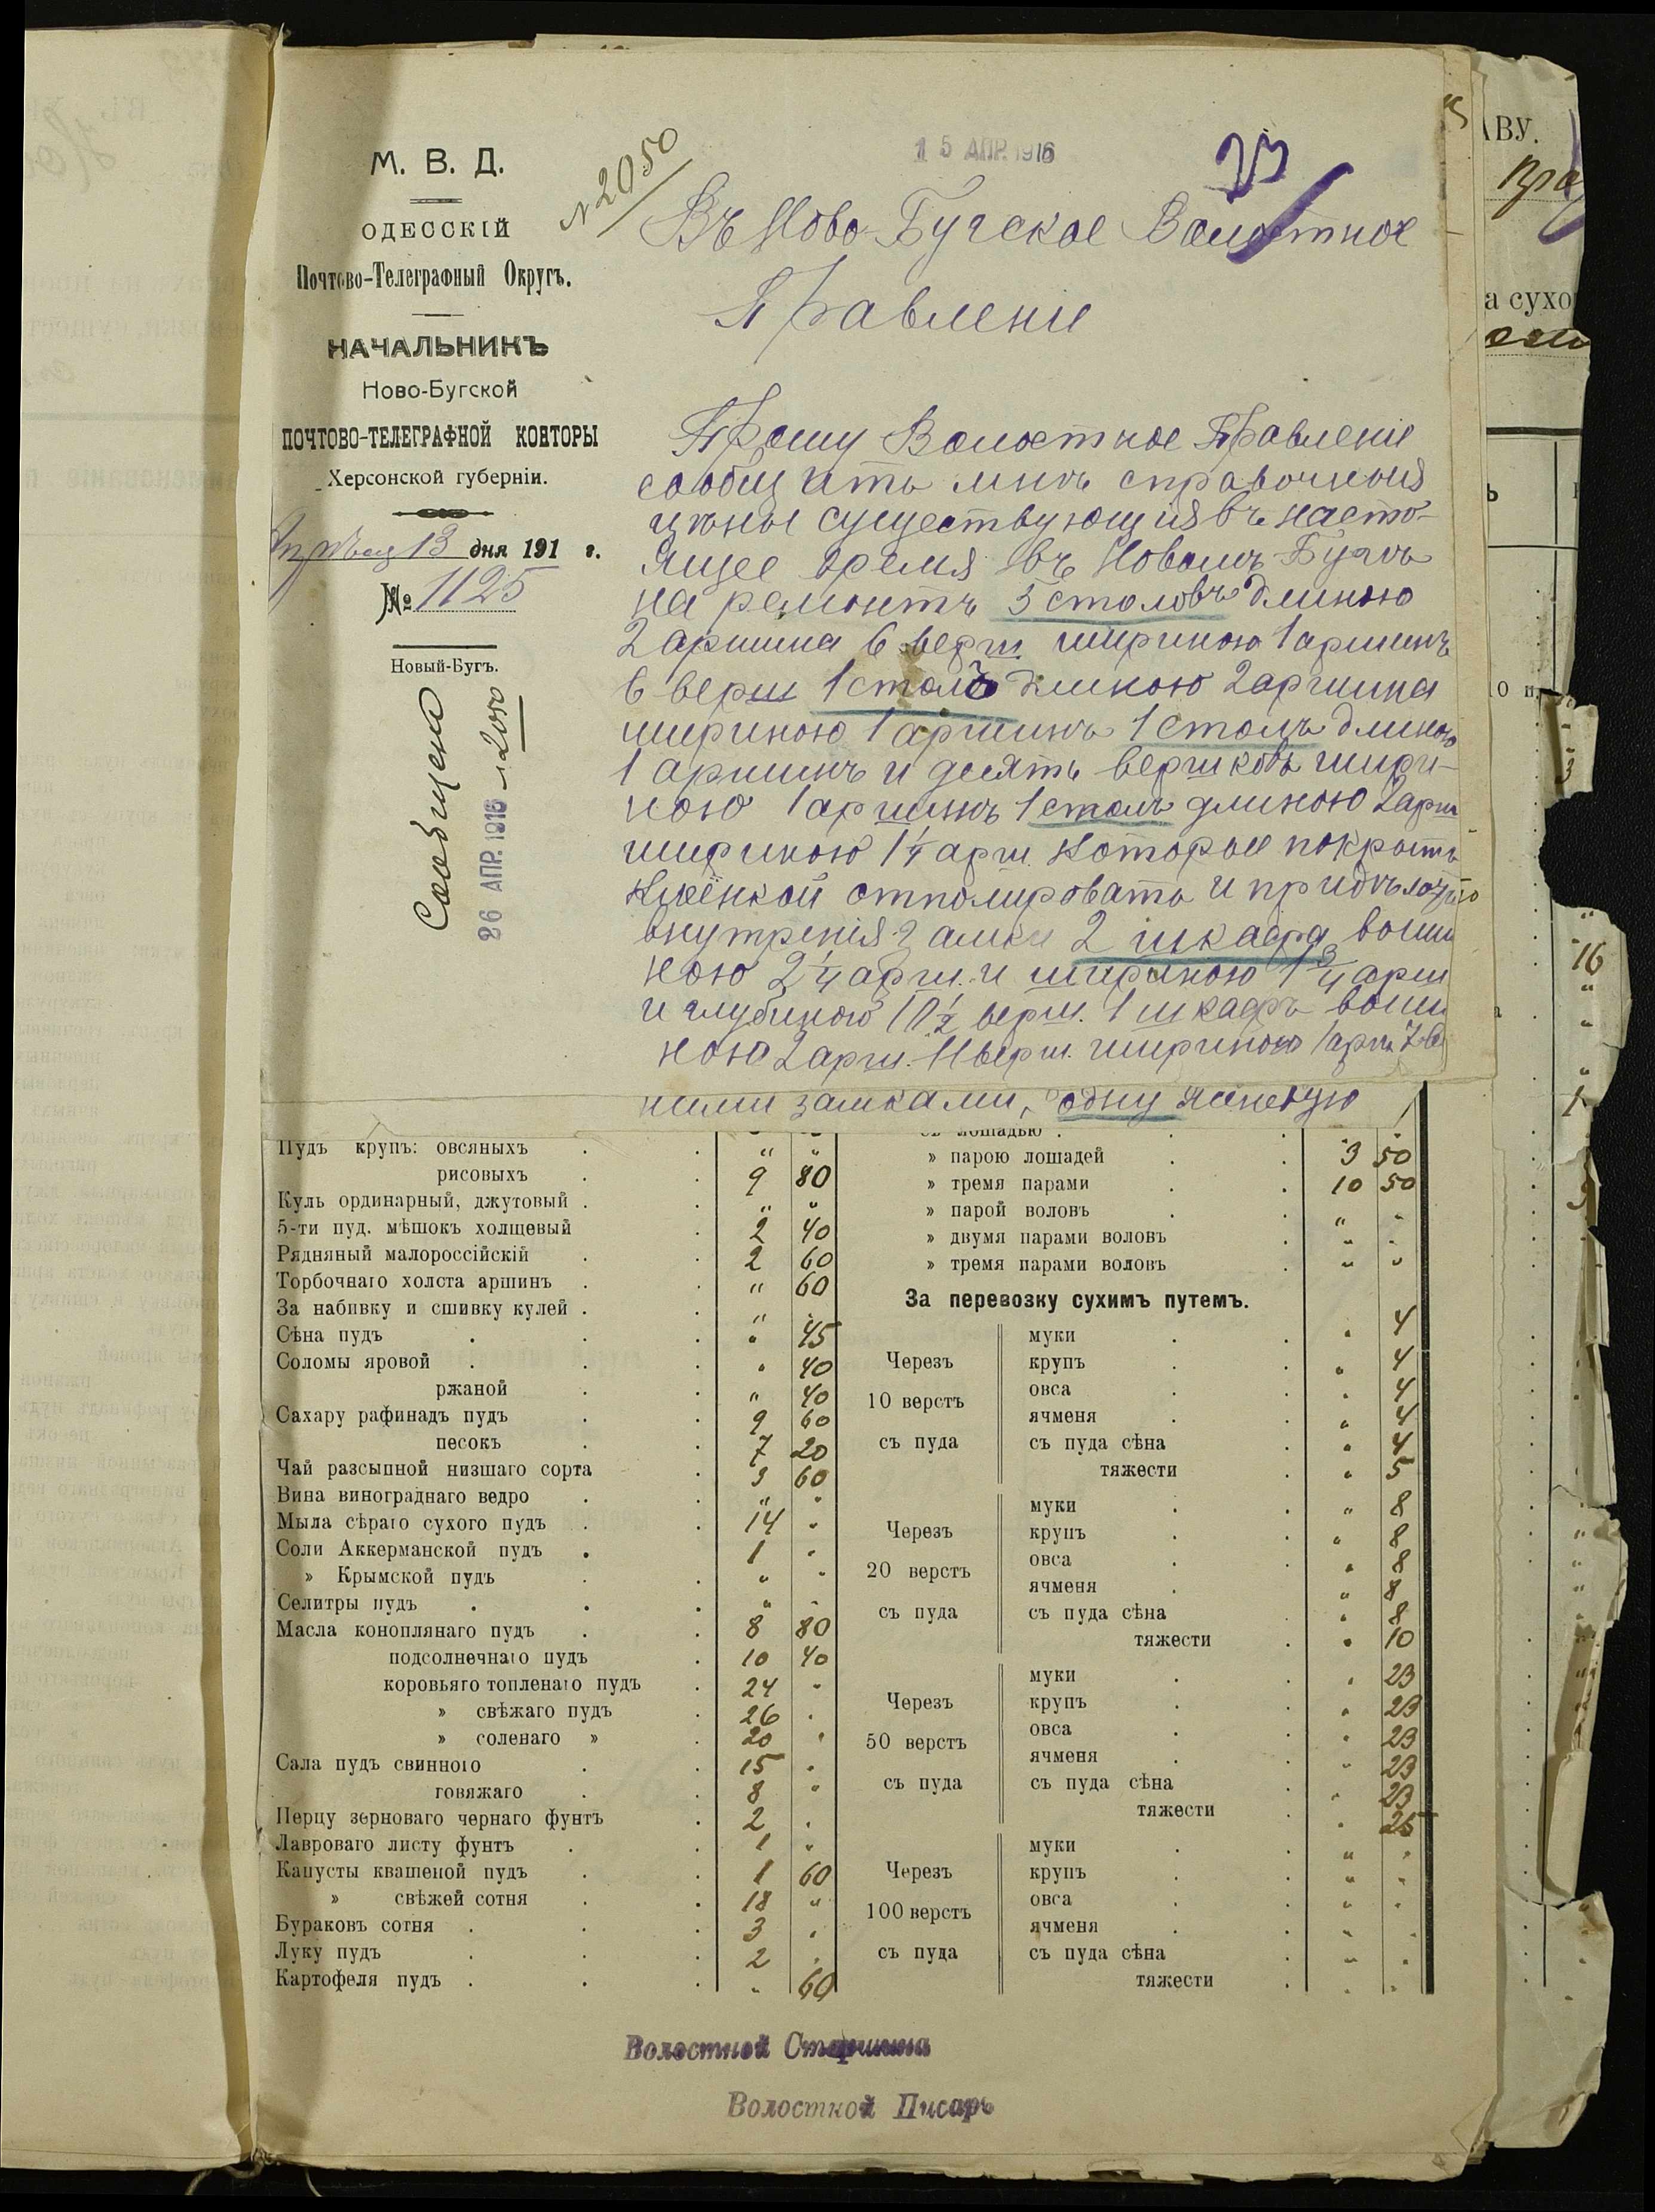 15 АПР. 1916
23
№ 2050
М. В. Д.
ОДЕССКІЙ
Почтово-Телеграфный Округъ.
НАЧАЛЬНИКЪ
Ново-Бугской
ПОЧТОВО-ТЕЛЕГРАФНОЙ КОНТОРЫ
Херсонской губерніи.
Апрѣля 13 дня 191 г.
№ 1125
Новый-Бугъ.
Сообщено
26 АПР. 1916 № 2050
Въ Ново-Бугское Волостное
Правленіе
Прошу Волостное Правленіе
сообщить мнѣ справочныя
цѣны существующія въ насто-
ящее время въ Новомъ Бугѣ
на ремонтъ 3 столовъ длиною
2 аршина 6 верш шириною 1 аршинъ
6 верш 1 столъ длиною 2 аршина
шириною 1 аршинъ 1 столъ длиною
1 аршинъ и десять вершковъ шири-
ною 1 аршинъ 1 столъ длиною 2 арш
шириною 1 1/4 арш. которые покрыть
клеёнкой отполировать и придѣлать
внутренія замки 2 шкафа выши
ною 2 1/4 арш. и шириною 1 3/4 арш
и глубиною 10 1/2 верш. 1 шкафъ выши
ною 2 арш. 11 верш. шириною 1 арш. 7 в
ними замками, одну ясневую
съ лошадью .
Пудъ крупъ: овсяныхъ . . " "
рисовыхъ . . 9 80
Куль ординарный, джутовый . . " "
5-ти пуд. мѣшокъ холщевый . 2 40
Рядняный малороссійскій . . 2 60
Торбочнаго холста аршинъ . . " 60
За набивку и сшивку кулей . . " "
Сѣна пудъ . . . " 45
Соломы яровой . . . " 40
ржаной . . " 40
Сахару рафинадъ пудъ . . 9 60
песокъ . . 7 20
Чай разсыпной низшаго сорта . 3 60
Вина винограднаго ведро . . " "
Мыла сѣраго сухого пудъ . . 14 "
Соли Аккерманской пудъ . 1 "
» Крымской пудъ . . " "
Селитры пудъ . . . " "
Масла коноплянаго пудъ . . 8 80
подсолнечнаго пудъ . 10 40
коровьяго топленаго пудъ . 24 "
» свѣжаго пудъ . 26 "
» соленаго » . 20 "
Сала пудъ свинного . . 15 "
говяжаго . . 8 "
Перцу зерноваго чернаго фунтъ . 2 "
Лавроваго листу фунтъ . . 1 "
Капусты квашеной пудъ . . 1 60
» свѣжей сотня . . 18 "
Бураковъ сотня . . . 3 "
Луку пудъ . . . 2 "
Картофеля пудъ . . . " 60
» парою лошадей . . 3 50
» тремя парами . . 10 50
» парой воловъ . . " "
» двумя парами воловъ . " "
» тремя парами воловъ . " "
За перевозку сухимъ путемъ.
Черезъ
10 верстъ
съ пуда
муки . . " 4
крупъ . . " 4
овса . . " 4
ячменя . . " 4
съ пуда сѣна . " 4
тяжести . " 5
Черезъ
20 верстъ
съ пуда
муки . . " 8
крупъ . . " 8
овса . . " 8
ячменя . " 8
съ пуда сѣна . " 8
тяжести . " 10
Черезъ
50 верстъ
съ пуда
муки . . " 23
крупъ . . " 23
овса . . " 23
ячменя . . " 23
съ пуда сѣна . " 23
тяжести . " 25
Черезъ
100 верстъ
съ пуда
муки . . " "
крупъ . . " "
овса . . " "
ячменя . . " "
съ пуда сѣна . " "
тяжести . " "
Волостной Старшина
Волостной Писарь